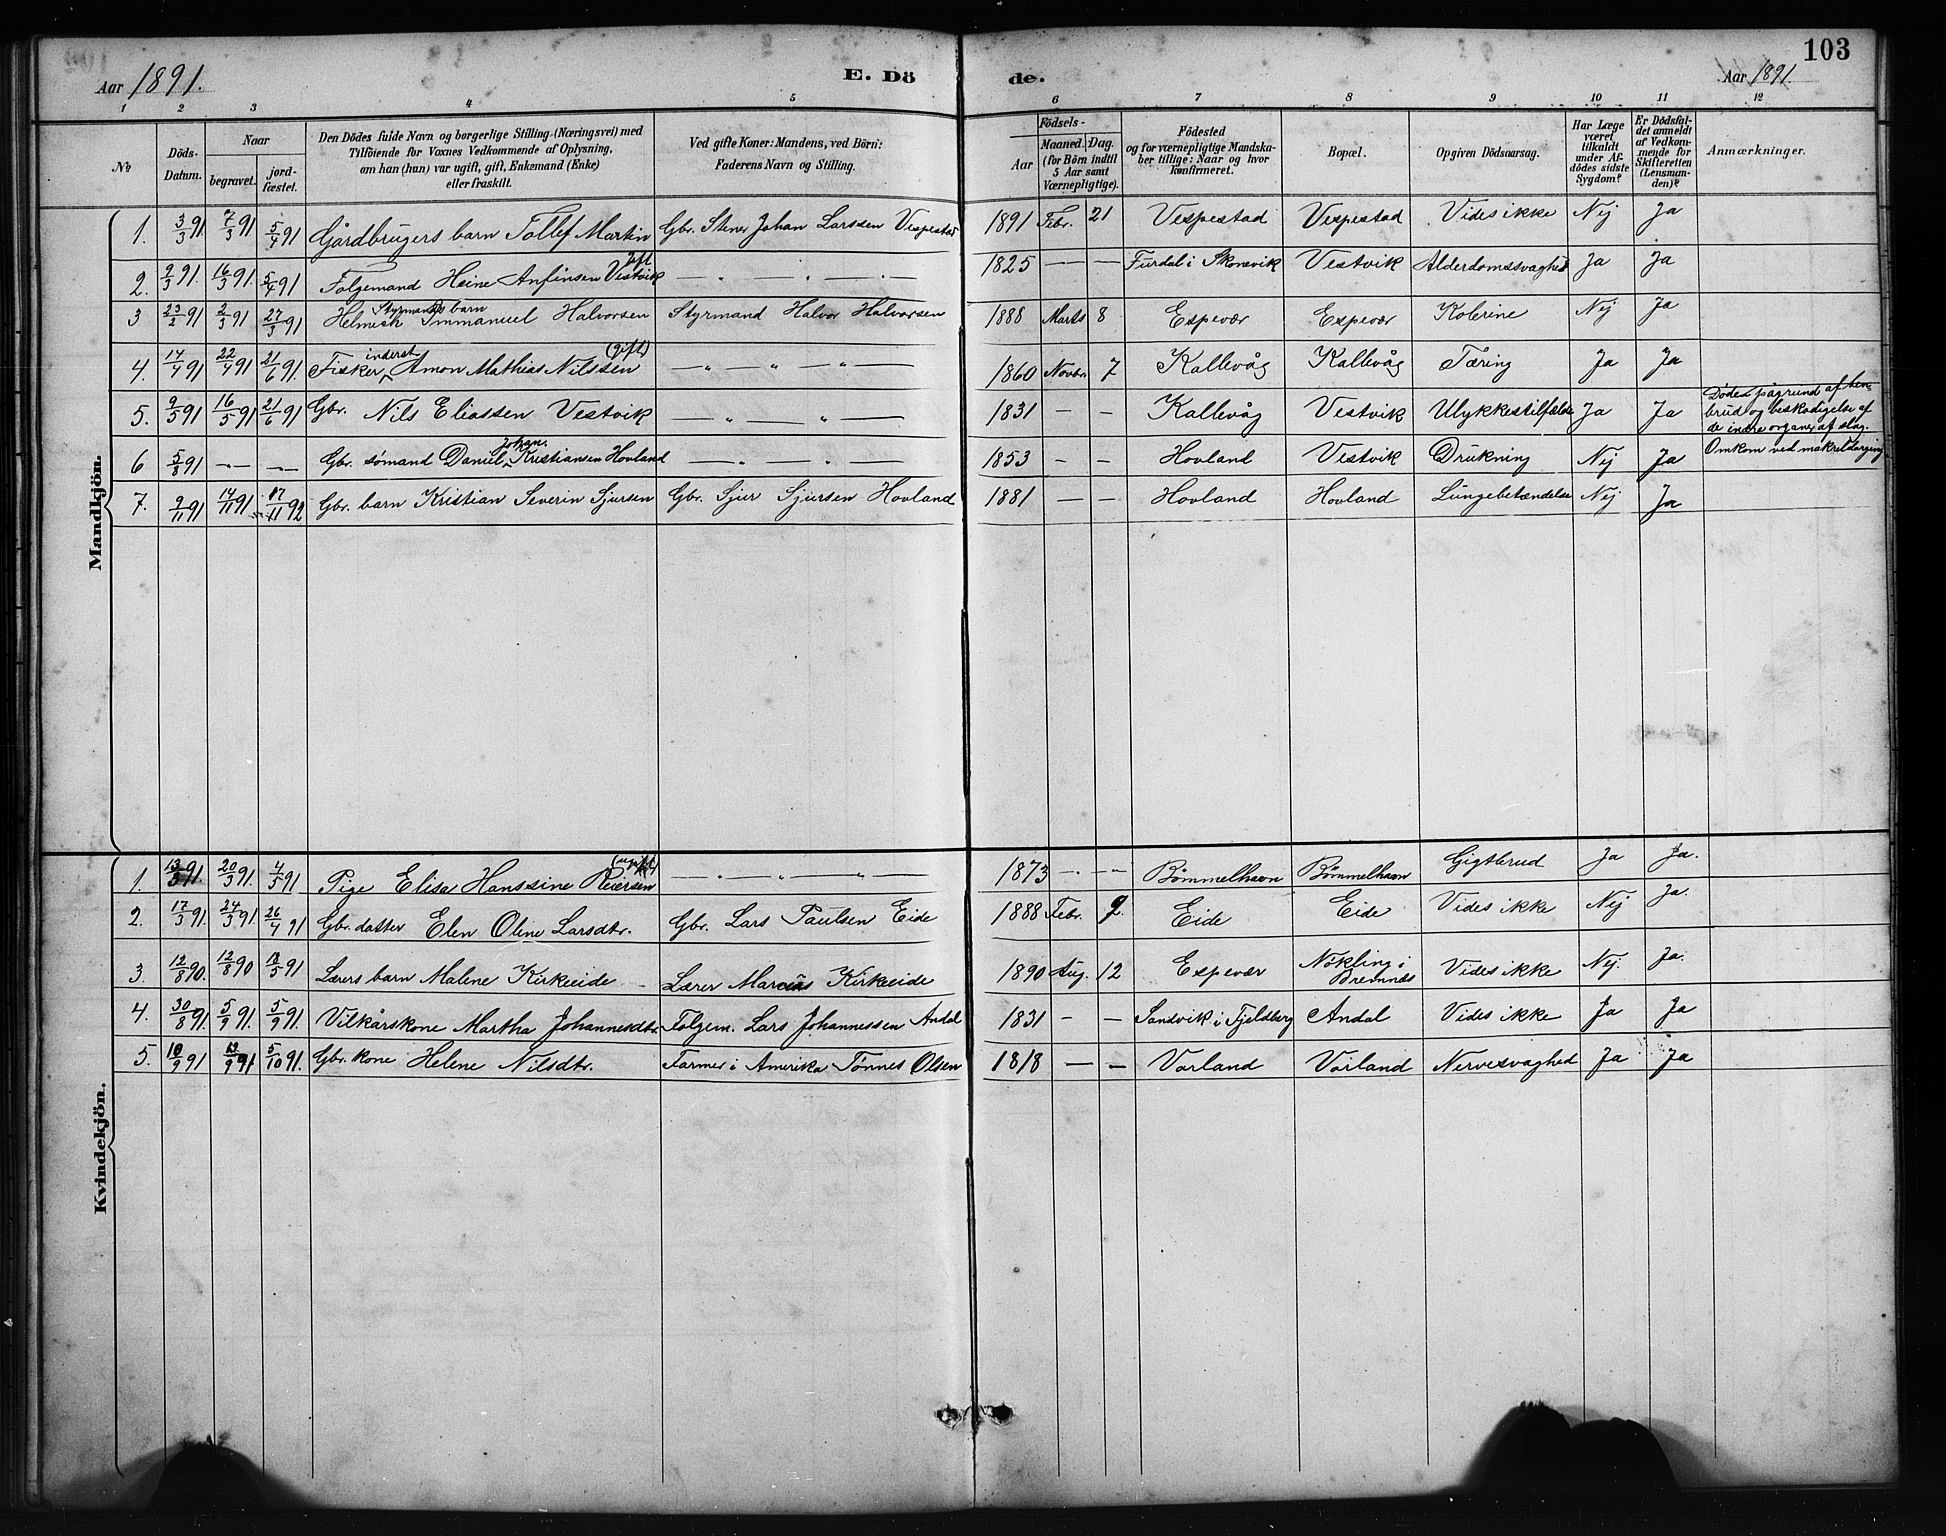 103
Aar 1891. E. Dö de. Aar 1891.
1 2 3 4 5 6 7 8 9 10 11 12
No
Döds-Datum.
Naar
begravet. jord-fæstet.
Den Dödes fulde Navn og borgerlige Stilling (Næringsvei) med
Tilföiende for Voxnes Vedkommende af Oplysning,
om han (hun) var ugift, gift, Enkemand (Enke)
eller fraskilt.
Ved gifte Koner: Mandens, ved Börn:
Faderens Navn og Stilling.
Födsels-
Aar
Maaned. Dag.
(for Börn indtil
5 Aar samt
Værnepligtige).
Födested
og for værnepligtige Mandska-
ber tillige: Naar og hvor
konfirmeret.
Bopæl.
Opgiven Dödsaarsag.
Har Læge
været
tilkaldt
under Af-
dödes sidste
Sygdom?
Er Dödsfal-
det anmeldt
af Vedkom-
mende for
Skifteretten
(Lensman-
den)?
Anmærkninger.
Mandkjön.
1. 3/3 91. 7/3 91 5/4 91 Gårdbrugers barn Tollef Martin Gbr. Stener Johan Larssen Vespestad 1891 Febr. 21 Vespestad Vespestad Vides ikke Nej Ja
2. 9/3 91. 16/3 91. 5/4 91 Folgemand Heine Anfinsen Vestvik gift — " — " — " — 1825 — — Furdal i Skonevik Vestvik Alderdomssvaghed Ja Ja
3 23/2 91 2/3 91 27/3 91 Styrmands barn Helmich Immanuel Halvorsen Styrmand Halvor Halvorsen 1888 Marts 8 Espevær Espevær Kolerine Nej Ja
4. 14/4 91 22/4 91 21/6 91. Fisker inderst Amon Mathias Nilssen (gift) — " — " — " — 1860 Novbr. 7 Kallevåg Kallevåg Tæring Ja Ja
5. 9/5 91 16/5 91 21/6 91 Gbr. Nils Eliassen Vestvik — " — " — 1831 — — Kallevåg Vestvik Ulykkestilfælde Ja Ja Døde pågrund af ben-
brud og beskadigelse af
de indre organer af slag.
6 5/8 91 — — Gbr. sømand Daniel Johan Kristiansen Hovland — " — " — 1853 — — Hovland Vestvik Drukning Nej Ja Omkom ved makreldorging
7. 9/11 91 14/11 91 17/11 92 Gbr. barn Kristian Severin Sjursen Gbr. Sjur Sjursen Hovland 1881 — — Hovland Hovland Lungebetændelse Nej Ja
Kvindekjön.
1. 13/3 91. 20/3 91. 4/5 91 Pige Elisa Hanssine Peersen (ugift) — " — " — " — 1873 — " — " Bømmelhavn Bømmelhavn Gigtbrud Ja Ja.
2. 17/3 91. 24/3 91. 26/4 91 Gbr. datter Elen Oline Larsdtr. Gbr. Lars Paulsen Eide 1888 Febr. 9. Eide Eide Vides ikke Nej Ja.
3. 12/8 90. 12/8 90 18/5 91 Lærers barn Malene Kirkeeide Lærer Marcus Kirkeeide 1890 Aug. 12 Espevær Nøkling i Bremnes Vides ikke Nej. Ja.
4. 30/8 91. 5/9 91. 5/9 91. Vilkårskone Martha Johannesdtr. Folgem. Lars Johannessen Andal 1831 — — Sandvik i Fjeldberg Andal Vides ikke Ja Ja
5. 10/9 91 13/9 91 5/10 91. Gbr. kone Helene Nilsdtr. Farmer i Amerika Tønnes Olsen 1818 — — Vorland Vorland Nervesvaghed Ja Ja